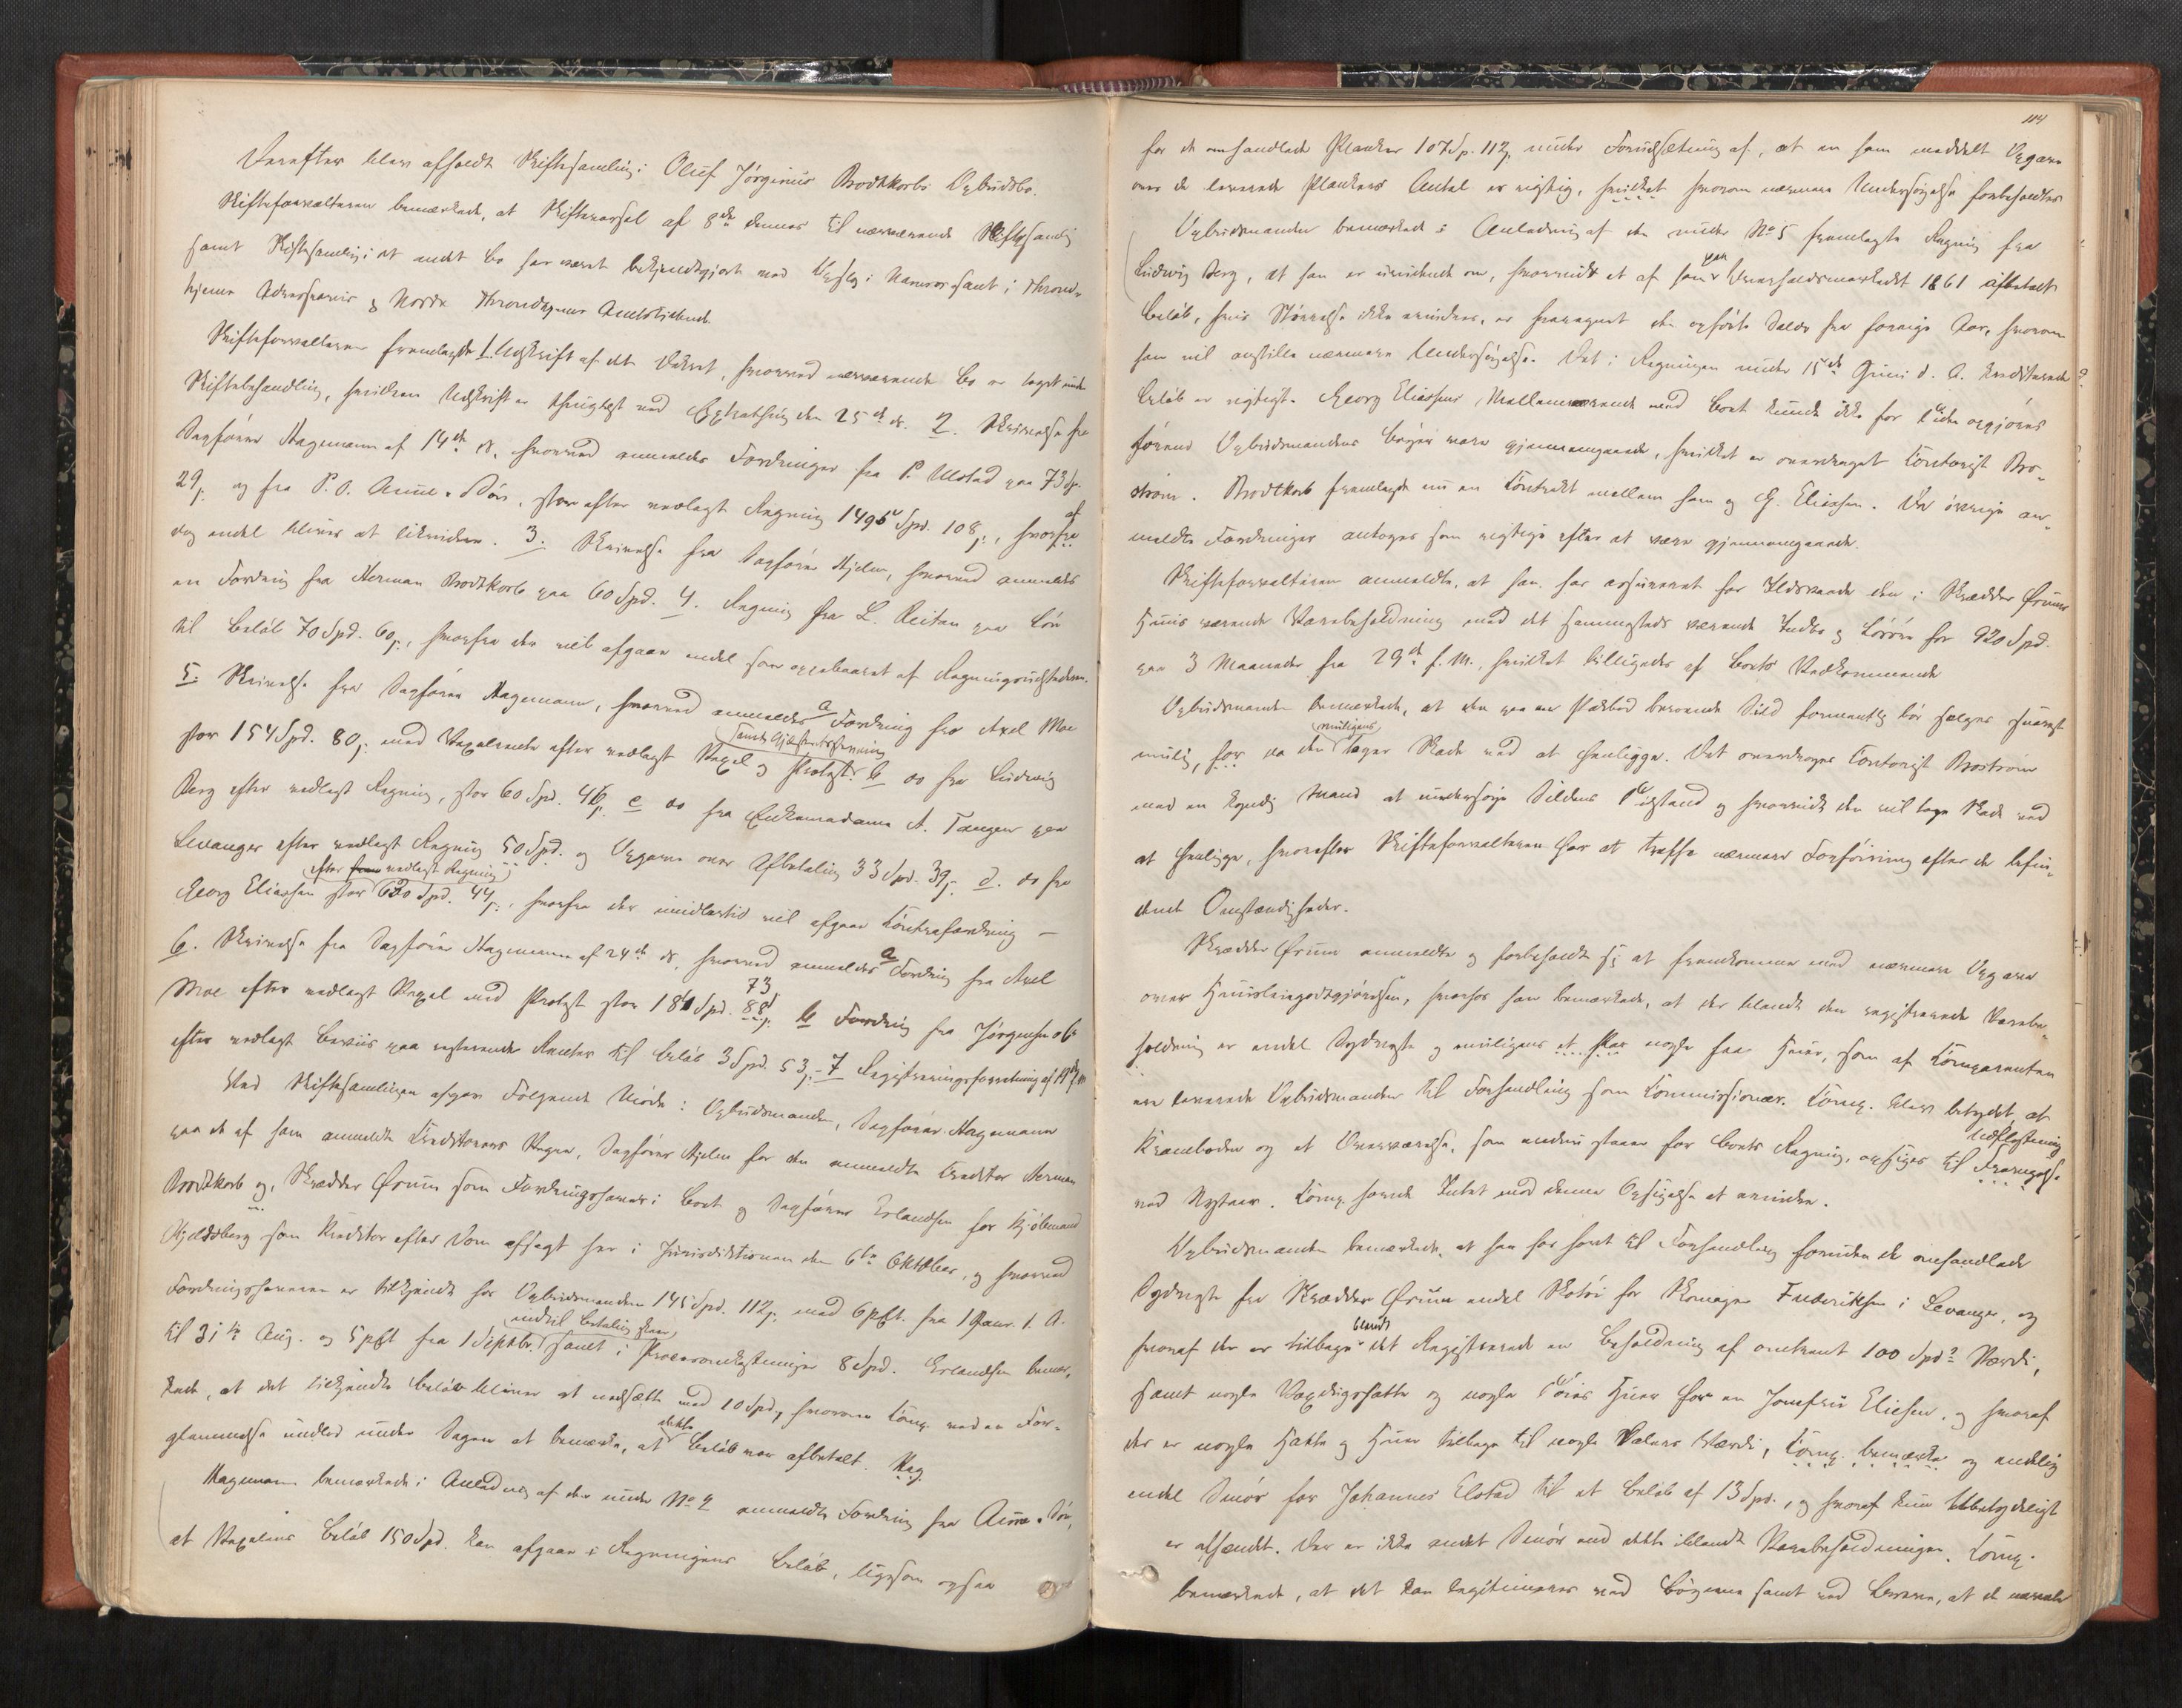 Derefter blev afholdt Skiftesamling i Oluf Jørginus Brodtkorbs Opbudsbo.
Skifteforvalteren bemærkede, at Skiftevarsel af 8de dennes til nærværende Skiftesamling
samt Skiftesamling i et andet Bo har været bekjendtgjort ved Opslag i Namsos samt i Thrond-
hjems Adresseavis & Nordre Throndhjems Amtstidende.
Skifteforvalteren fremlagde 1. Udskrift af det Dekret, hvorved nærværende Bo er taget under
Skiftebehandling, hvilken Udskrift er thinglæst ved Extrathing den 25de ds. 2. Skrivelse fra
Sagfører Hagemann af 14de ds. hvorved anmeldes Fordringer fra P. Ulstad paa 73 Sp.
29 ß og fra P. O. Aune & Søn, stor efter vedlagt Regning 1495 Spd. 108 ß, hvoraf
dog endel bliver at likvidere. 3. Skrivelse fra Sagfører Hjelm, hvorved anmeldes
en Fordring fra Herman Brodtkorb paa 60 Spd. 4. Regning fra L. Reitan paa Løn
til Beløb 70 Spd. 60 ß, hvorfra der vil afgaae endel som oppebaaret af Regningsudstederen.
5. Skrivelse fra Sagfører Hagemann, hvorved anmeldes a Fordring fra Axel Moe
stor 154 Spd. 80 ß med Vexelrente efter vedlagt Vexel og Protest samt Gjæsteretsstevning b do fra Ludvig
Berg efter vedlagt Regning, stor 60 Spd. 46 ß c do fra Enkemadame A. Tangen paa
Levanger efter vedlagt Regning 50 Spd. og Opgave over Afbetaling 33 Spd. 39 ß d. do fra
Georg Eliassen stor efter vedlagt Regning 620 Spd. 44 ß, hvorfra der imidlertid vil afgaae Kontrafordring —
6. Skrivelse fra Sagfører Hagemann af 24de ds, hvorved anmeldes a Fordring fra Axel
Moe efter vedlagt Vexel med Protest stor 181 Spd. 73 88 ß. b Fordring fra Jørgensen & Co
efter vedlagt Beviis paa resterende Renter til Beløb 3 Spd. 53 ß - 7 Registreringsforretning af
Ved Skiftesamlingen afgav Følgende Møde: Opbudsmanden, Sagfører Hagemann
paa de af ham anmeldte Kreditorers Vegne, Sagfører Hjelm for den anmeldte Kreditor Herman
Brodtkorb og, Skrædder Ørum som Fordringshaver i Boet og Sagfører Erlandsen for Kjøbmand
Kjeldsberg som Kreditor efter Dom afsagt her i Jurisdiktionen den 6te Oktober, og hvorved
Fordringshaveren er tilkjendt hos Opbudsmanden 145 Spd. 112 ß med 6 pCt. fra 1 Janr. d. A.
til 31te Aug. og 5 pCt fra 1 Septbr. indtil Betaling skeer samt i Procesomkostninger 8 Spd. Erlandsen bemær-
kede, at det tilkjendte Beløb bliver at nedsætte med 10 Spd., hvorom Komp. ved en For-
glemmelse undlod under Sagen at bemærke, at dette Beløb var afbetalt. Hag.
Hagemann bemærkede i Anledning af den under No 2 anmeldte Fordring fra Aune & Søn,
at Vexelens Beløb 150 Spd. kan afgaae i Regningens Beløb, ligesom ogsaa
114
for de omhandlede Planker 107 Sp. 112 ß under Forudsætning af, at en ham meddelt Opgave
over de leverede Plankers Antal er rigtig, hvilket hvorom nærmere Undersøgelse forbeholdtes
Opbudsmanden bemærkede i Anledning af den under No 5 fremlagte Regning fra
Ludvig Berg, at han er uvidende om, hvorvidt et af ham paa Overholdsmarkedet 1861 afbetalt
Beløb, hvis Størrelse ikke erindres, er fraregnet den opførte Saldo fra forrige Aar, hvorom
han vil anstille nærmere Undersøgelse. Det i Regningen under 15de Juni d. A. krediterede
Beløb er rigtigt. Georg Eliassens Mellemværende med Boet kunde ikke for Tiden opgjøres
førend Opbudsmandens Bøger vare gjennemgaaede, hvilket er overdraget Kontorist Bro-
strøm. Brodtkorb fremlagde nu en Kontrakt mellem ham og G. Eliassen. De øvrige an-
meldte Fordringer antoges som rigtige efter at være gjennemgaaede.
Skifteforvalteren anmeldte, at han har assureret for Ildsvaade den i Skrædder Ørums
Huus værende Varebeholdning med det sammesteds værende Indbo og Løsøre for 920 Spd.
paa 3 Maaneder fra 29de f. M., hvilket billigedes af Boets Vedkommende
Opbudsmanden bemærkede, at den paa en Søebod beroende Sild formentlig bør sælges snarest
mulig, for da den muligens tager Skade ved at henligge. Det overdroges Kontorist Brostrøm
med en kyndig Mand at undersøge Sildens Tilstand og hvorvidt den vil tage Skade ved
at henligge, hvorefter Skifteforvalteren har at træffe nærmere Forføining efter de befin-
dende Omstændigheder.
Skrædder Ørum anmeldte og forbeholdt sig at fremkomme med nærmere Opgave
over Huusleiegodtgjørelsen, hvorhos han bemærkede, at der blandt den registrerede Varebe-
holdning er endel Sydvester og muligens et Par nogle faa Huer, som af Komparenten
ere leverede Opbudsmanden til Forhandling som Kommissionær. Komp. blev betydet, at
Kramboden og et Overværelse, som endnu staaer for Boets Regning, opsiges til Fravigelse Udflytning
ved Nytaar. Komp. havde Intet mod denne Opsigelse at erindre.
Opbudsmanden bemærkede, at han har havt til Forhandling foruden de omhandlede
Sydvester fra Skrædder Ørum endel Skotøi for Skomager Frederiksen i Levanger, og
hvoraf der er tilbage blandt det Registrerede en Beholdning af omtrent 100 Spds Værdi,
samt nogle Voxdugshatte og nogle Tøies Huer for en Jomfru Eliesen, og hvoraf
der er nogle Hatte og Huer tilbage til nogle Dalers Værdi, Komp. bemærke og endelig
endel Smør for Johannes Elstad til et Beløb af 13 Spd., og hvoraf kun Ubetydeligt
er afhændet. Der er ikke andet Smør end dette iblandt Varebeholdningen. Komp.
bemærkede, at det kan legitimeres ved Bøgerne samt ved Breve, at de nævnte